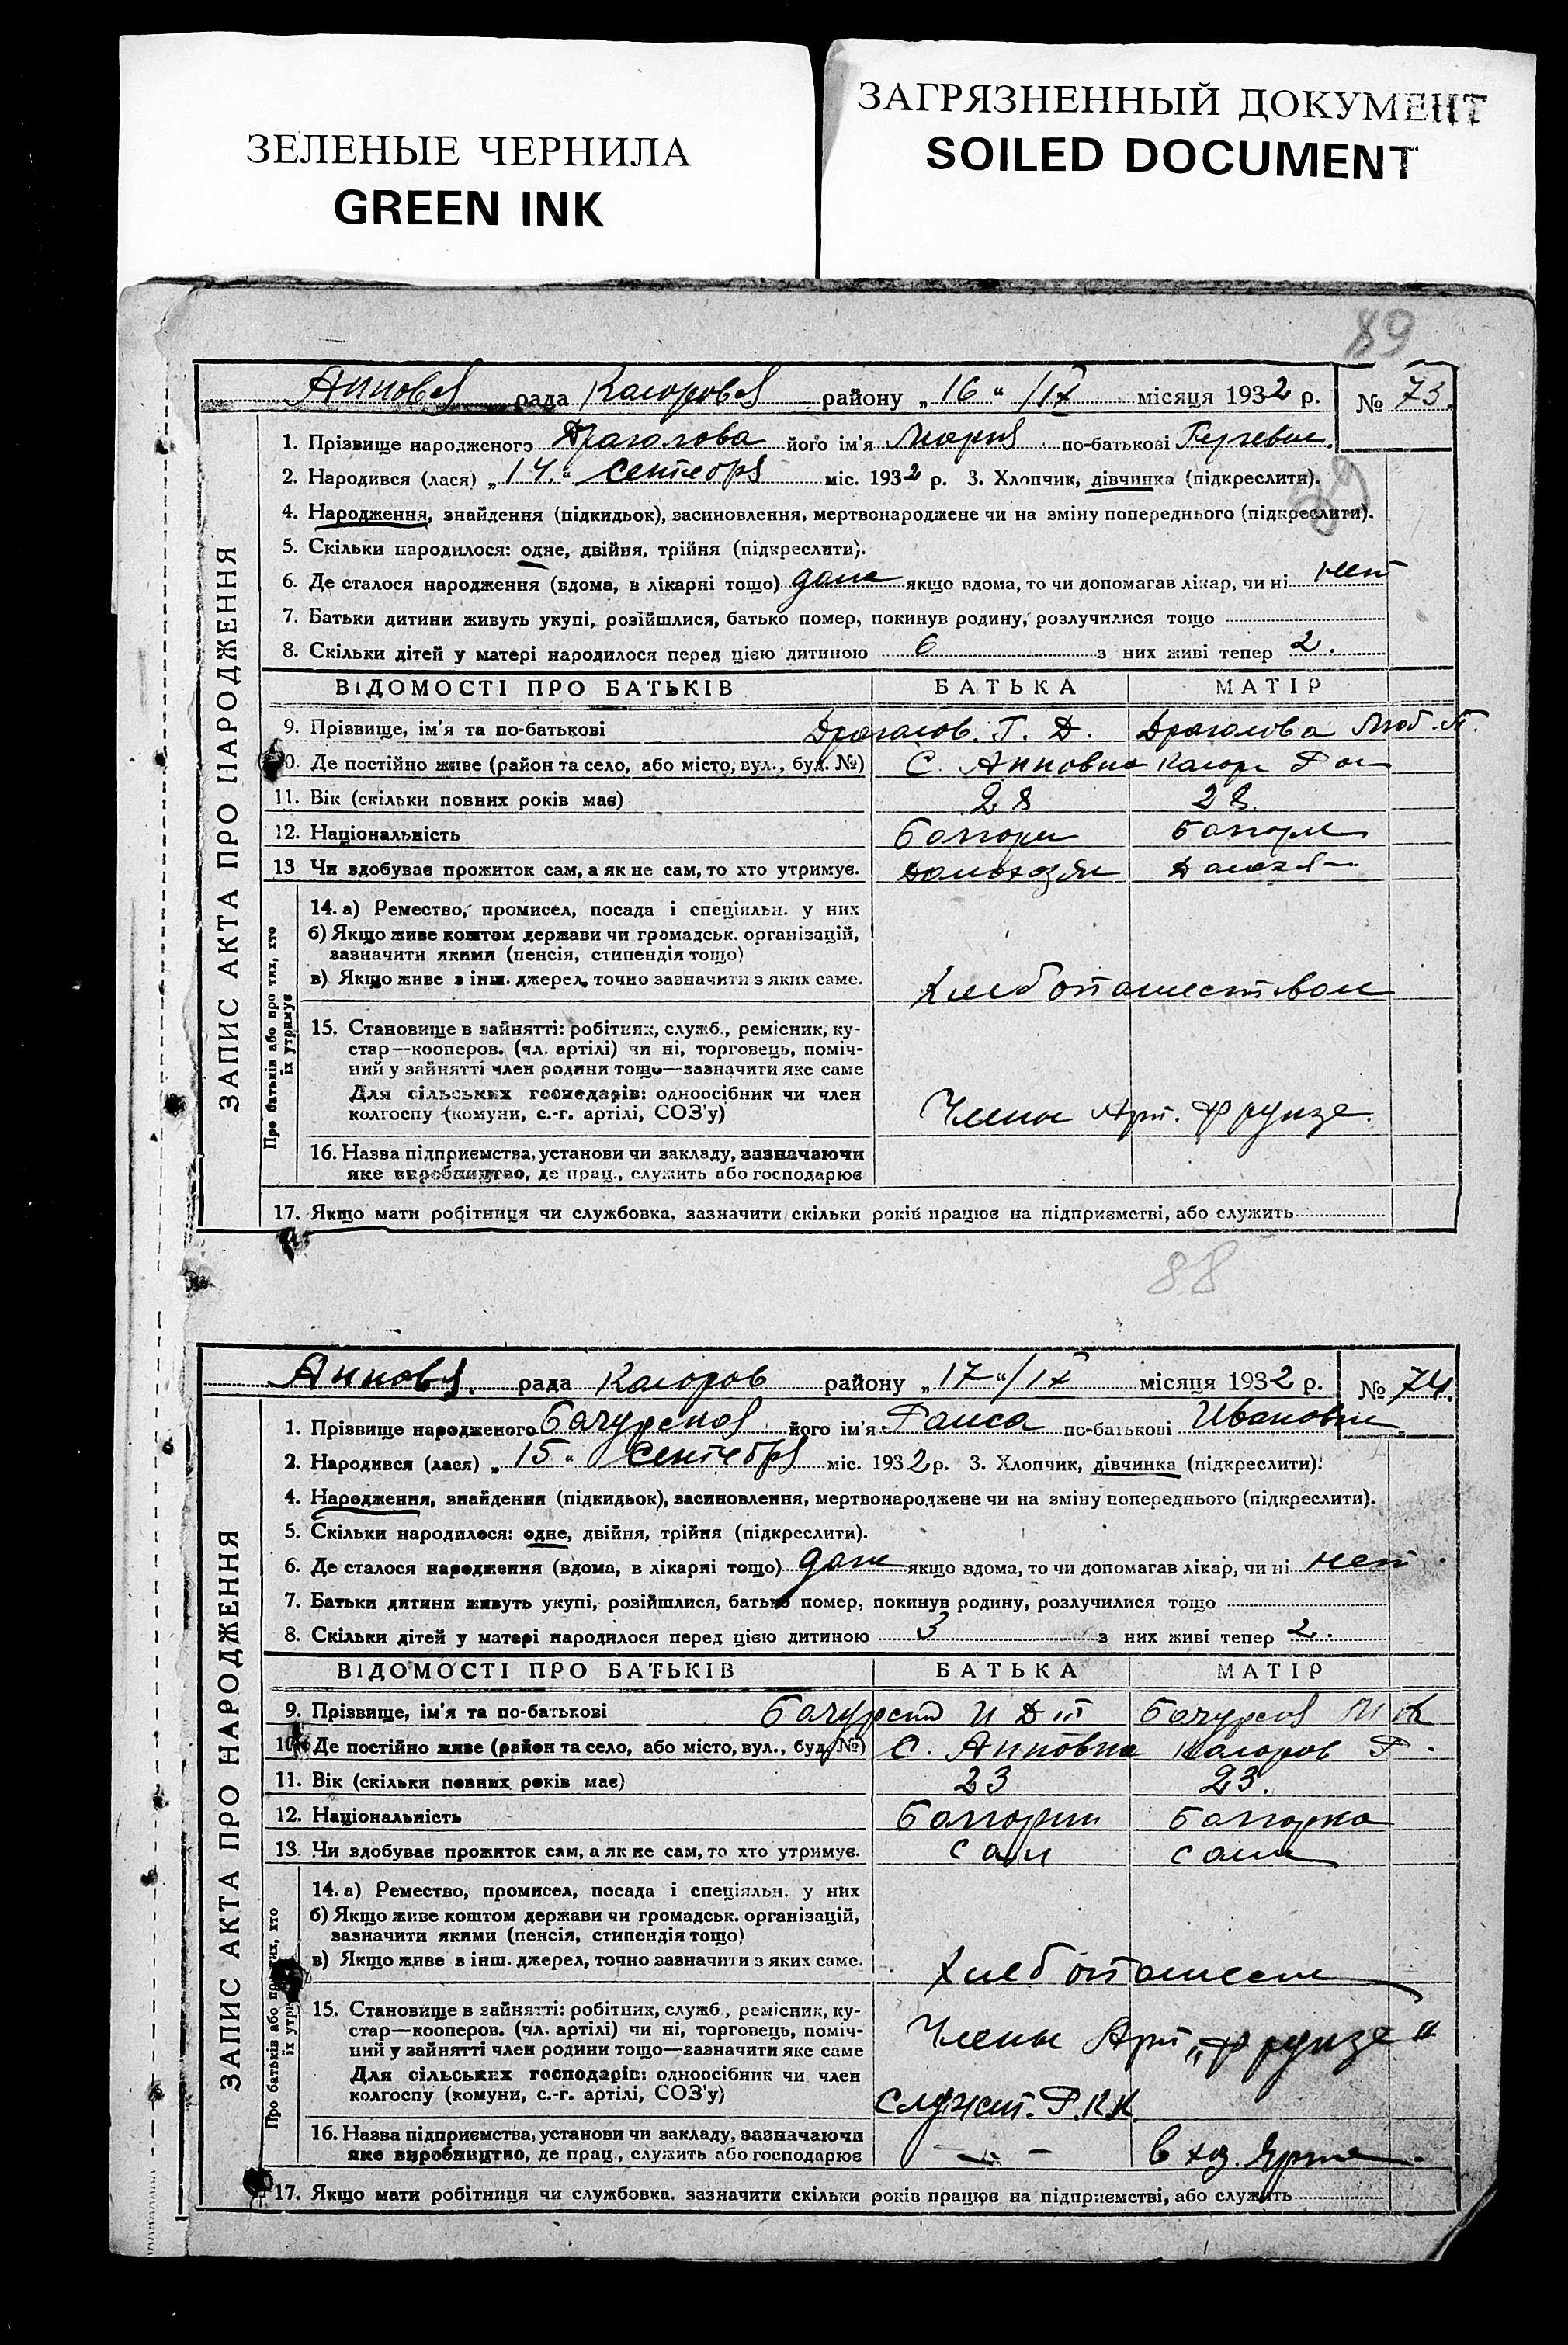 ЗЕЛЕНЫЕ ЧЕРНИЛА
GREEN INK
ЗАГРЯЗНЕННЫЙ ДОКУМЕНТ
SOILED DOCUMENT
89
рада району „16“/IX місяця 1932 р. № 73.
89
ЗАПИС АКТА ПРО НАРОДЖЕННЯ
1. Прізвище народженого Драгалова його ім'я Мария по-батькові
2. Народився (лася) „14.“ сентебря міс. 1932 р. 3. Хлопчик, дівчинка (підкреслити).
4. Народження, знайдення (підкидьок), засиновлення, мертвонароджене чи на зміну попереднього (підкреслити).
5. Скільки народилося: одне, двійня, трійня (підкреслити).
6. Де сталося народження (вдома, в лікарні тощо) дома якщо вдома, то чи допомагав лікар, чи ні нет
7. Батьки дитини живуть укупі, розійшлися, батько помер, покинув родину, розлучилися тощо
8. Скільки дітей у матері народилося перед цією дитиною 6 з них живі тепер 2.
ВІДОМОСТІ ПРО БАТЬКІВ БАТЬКА МАТІР
9. Прізвище, ім'я та по-батькові Драгалов. Г. Д. Драгалова Люб.
10. Де постійно живе (район та село, або місто, вул., буд. №) С. Анновка
11. Вік (скільки повних років має) 28 28.
12. Національність Болгоры Болгоры
13. Чи здобуває прожиток сам, а як не сам, то хто утримує.
Про батьків або про тих, хто їх утримує
14. а) Ремество, промисел, посада і спеціяльн. у них
б) Якщо живе коштом держави чи громадськ. організацій,
зазначити якими (пенсія, стипендія тощо)
в) Якщо живе з інш. джерел, точно зазначити з яких саме. Хлебопашеством
15. Становище в зайнятті: робітник, служб., ремісник, ку-
стар—кооперов. (чл. артілі) чи ні, торговець, поміч-
ний у зайнятті член родини тощо—зазначити яке саме
Для сільських господарів: одноосібник чи член
колгоспу (комуни, с.-г. артілі, СОЗ'у) Члены Арт. Фрунзе.
16. Назва підприємства, установи чи закладу, зазначаючи
яке виробництво, де прац., служить або господарює
17. Якщо мати робітниця чи службовка, зазначити скільки років працює на підприємстві, або служить
88
рада району „17“/IX місяця 1932 р. № 74.
ЗАПИС АКТА ПРО НАРОДЖЕННЯ
1. Прізвище народженого його ім'я Раиса по-батькові Ивановн
2. Народився (лася) „15“ сентебря міс. 1932 р. 3. Хлопчик, дівчинка (підкреслити).
4. Народження, знайдення (підкидьок), засиновлення, мертвонароджене чи на зміну попереднього (підкреслити).
5. Скільки народилося: одне, двійня, трійня (підкреслити).
6. Де сталося народження (вдома, в лікарні тощо) дом якщо вдома, то чи допомагав лікар, чи ні нет.
7. Батьки дитини живуть укупі, розійшлися, батько помер, покинув родину, розлучилися тощо
8. Скільки дітей у матері народилося перед цією дитиною 3 з них живі тепер 2.
ВІДОМОСТІ ПРО БАТЬКІВ БАТЬКА МАТІР
9. Прізвище, ім'я та по-батькові
10. Де постійно живе (район та село, або місто, вул., буд. №) С. Анновка
11. Вік (скільки повних років має) 23 23.
12. Національність Болгорин Болгорка
13. Чи здобуває прожиток сам, а як не сам, то хто утримує. сам сама
Про батьків або про тих, хто їх утримує
14. а) Ремество, промисел, посада і спеціяльн. у них
б) Якщо живе коштом держави чи громадськ. організацій,
зазначити якими (пенсія, стипендія тощо)
в) Якщо живе з інш. джерел, точно зазначити з яких саме. Хлебопашест
15. Становище в зайнятті: робітник, служб., ремісник, ку-
стар—кооперов. (чл. артілі) чи ні, торговець, поміч-
ний у зайнятті член родини тощо—зазначити яке саме
Члены Арт „Фрунзе“
Для сільських господарів: одноосібник чи член
колгоспу (комуни, с.-г. артілі, СОЗ'у)
16. Назва підприємства, установи чи закладу, зазначаючи
яке виробництво, де прац., служить або господарює
17. Якщо мати робітниця чи службовка, зазначити скільки років працює на підприємстві, або служить